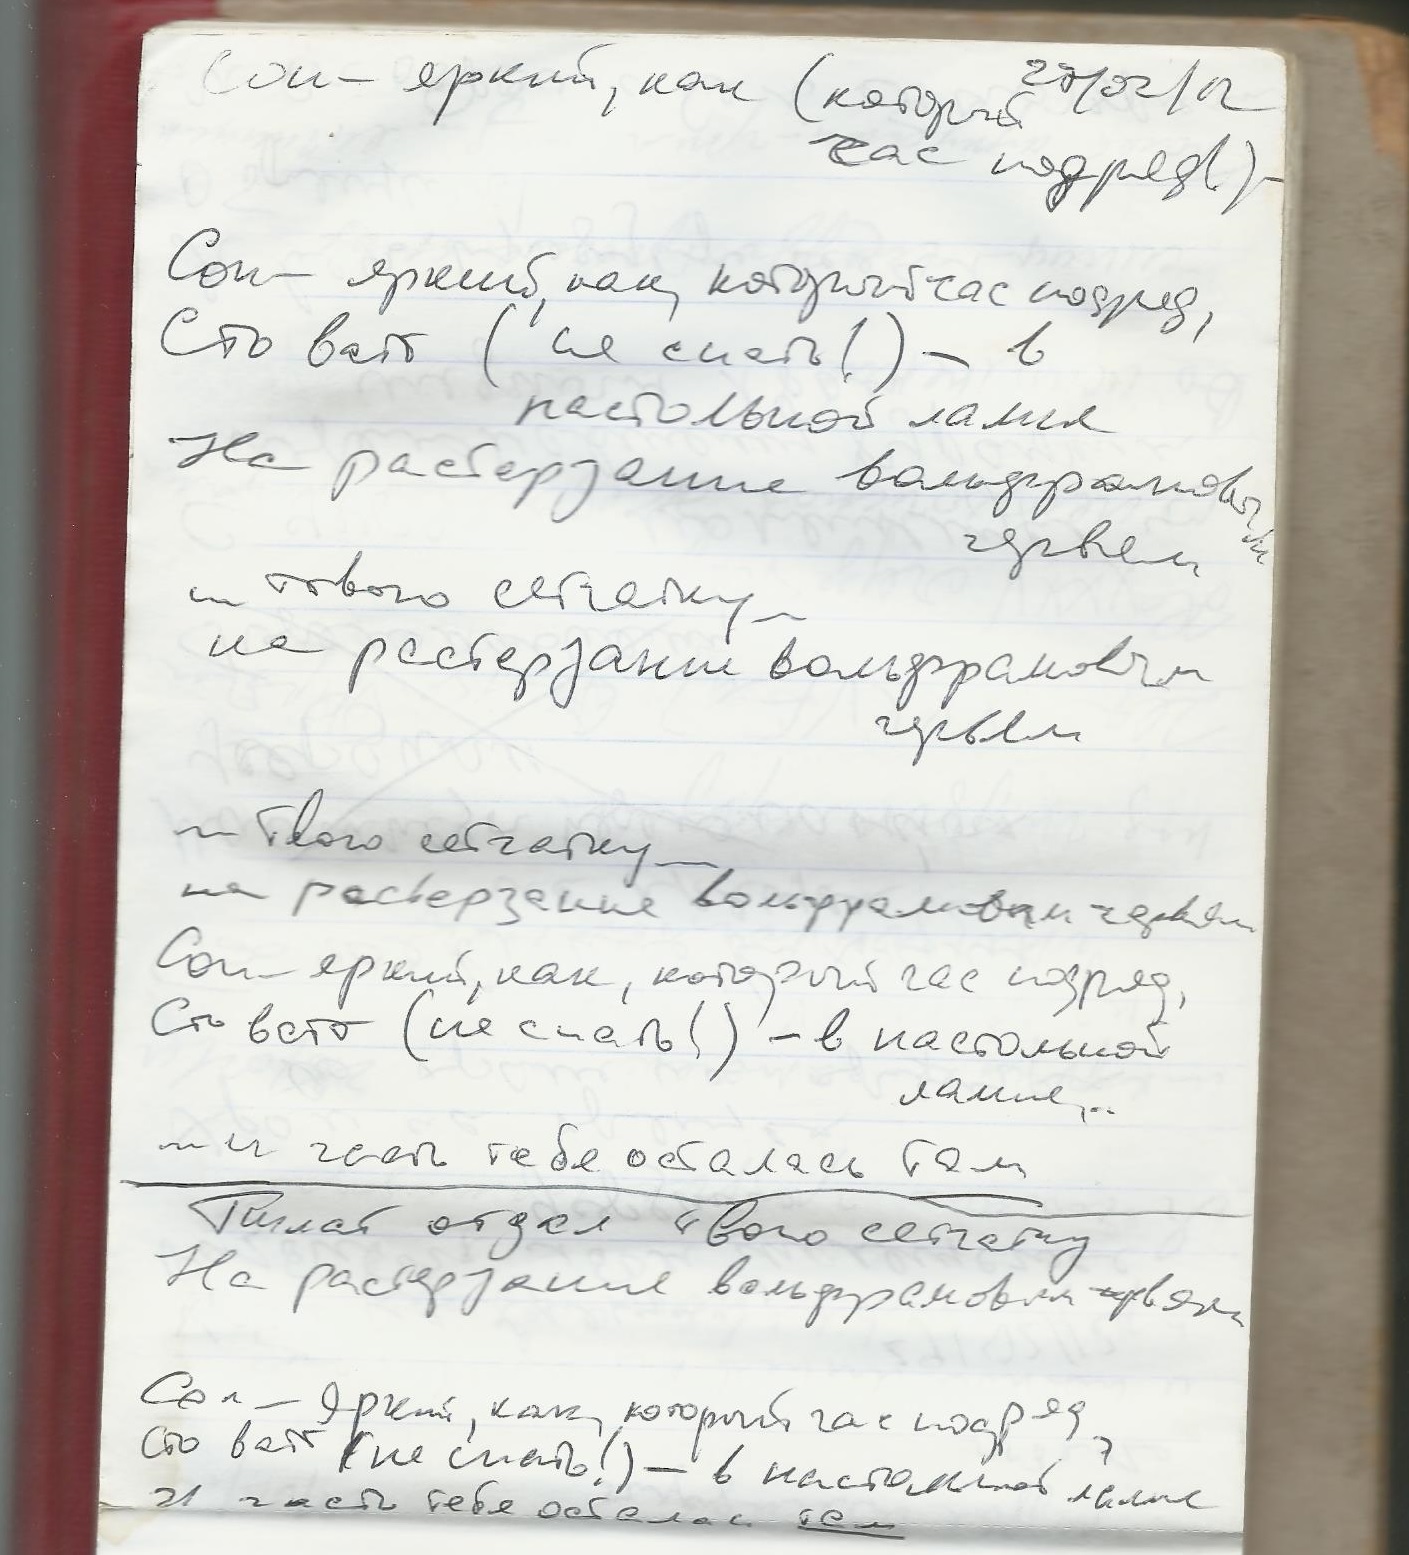 Сон – яркий, как (который
27/02/12
час подряд!) –
Сон – яркий, как, который час подряд,
Сто ватт (не спать!) – в
настольной лампе
На растерзание вольфрамовым
червям
... твою сетчатку –
на растерзание вольфрамовым
червям
... твою сетчатку –
на растерзание вольфрамовым червям
Сон – яркий, как, который час подряд,
Сто ватт (не спать!) – в настольной
лампе...
... и часть тебя осталась там
отдал твою сетчатку
На растерзание вольфрамовым червям
Сон – яркий, как, который час подряд,
Сто ватт (не спать!) – в настольной лампе
И часть тебя осталась там